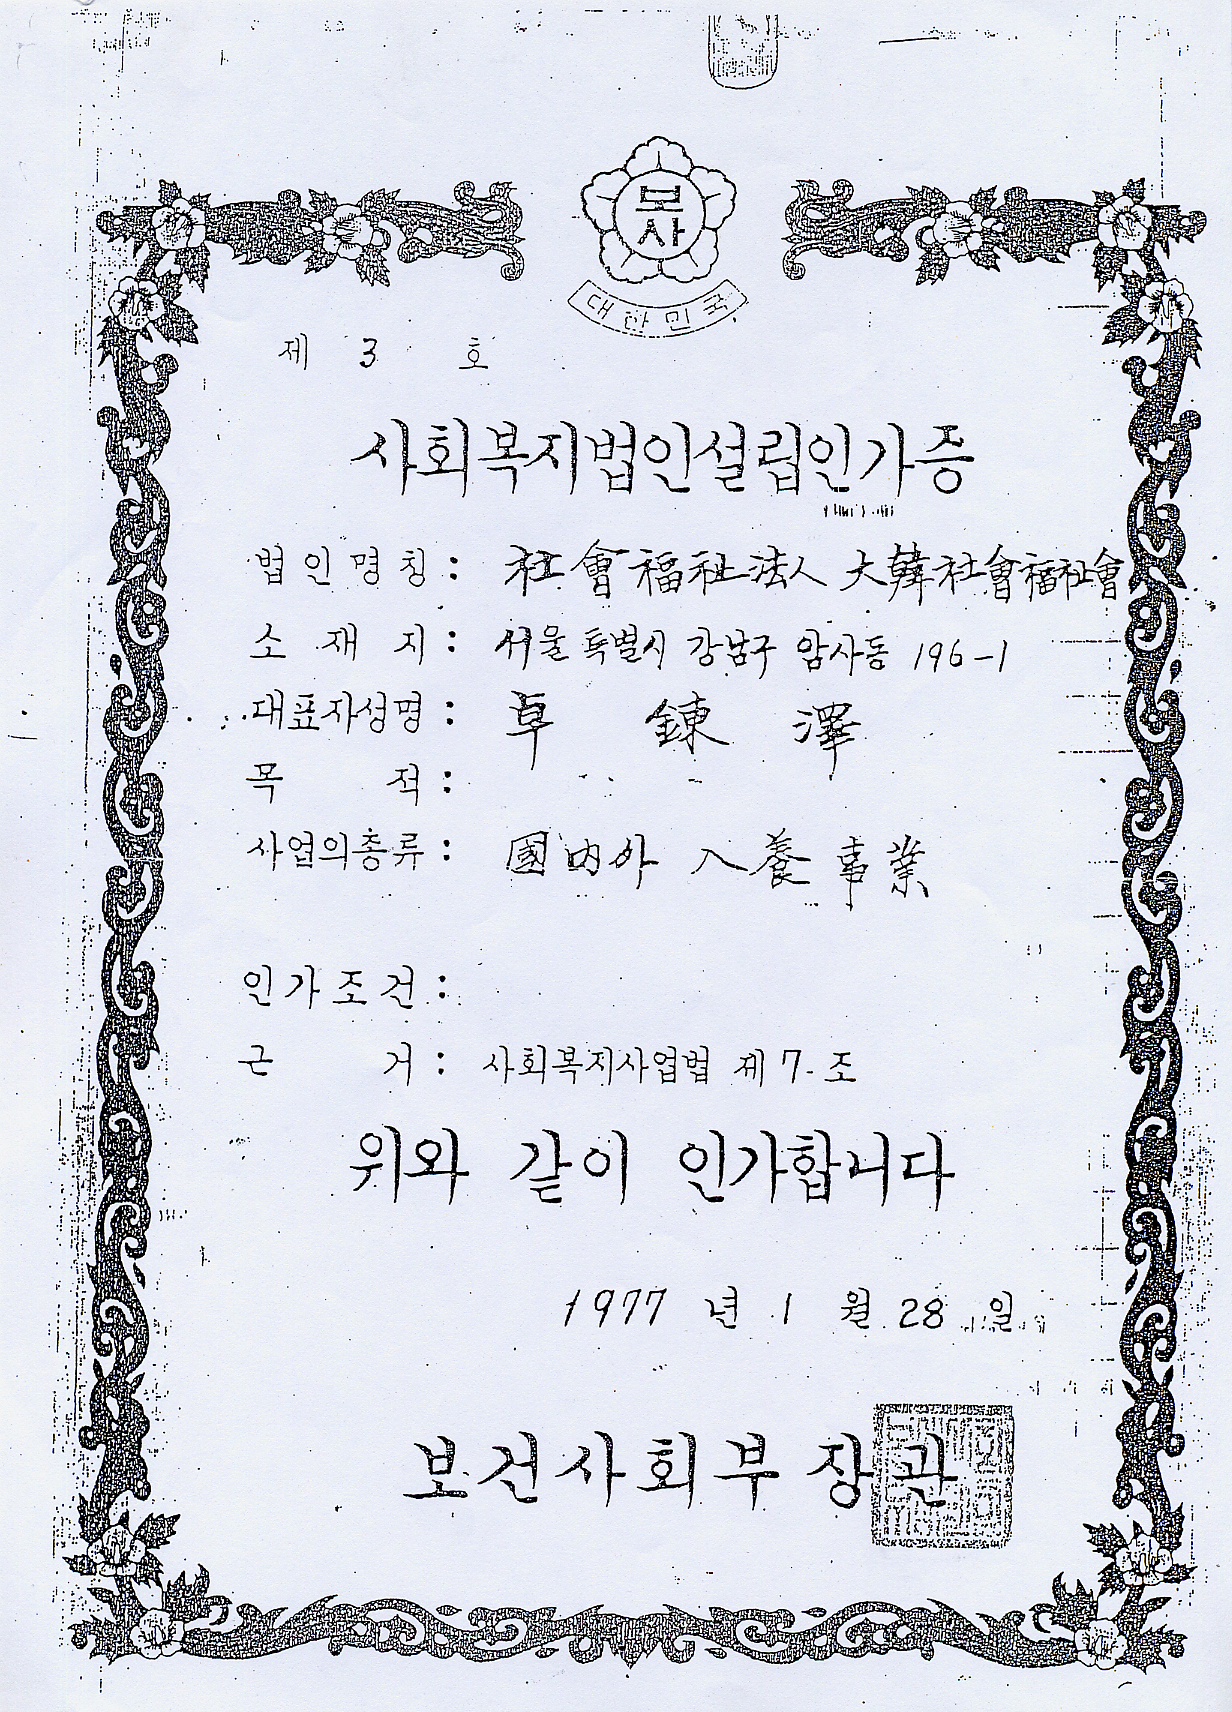 보사
대한민국
제 3 호
사회복지법인설립인가증
법인명칭 : 社會福祉法人 大韓社會福祉會
소재지 : 서울특별시 강남구 암사동 196-1
대표자성명 : 卓鍊澤
목적 :
사업의종류 : 國內外 入養事業
인가조건 :
근거 : 사회복지사업법 제7조
위와 같이 인가합니다
1977 년 1 월 28 일
보건사회부장관